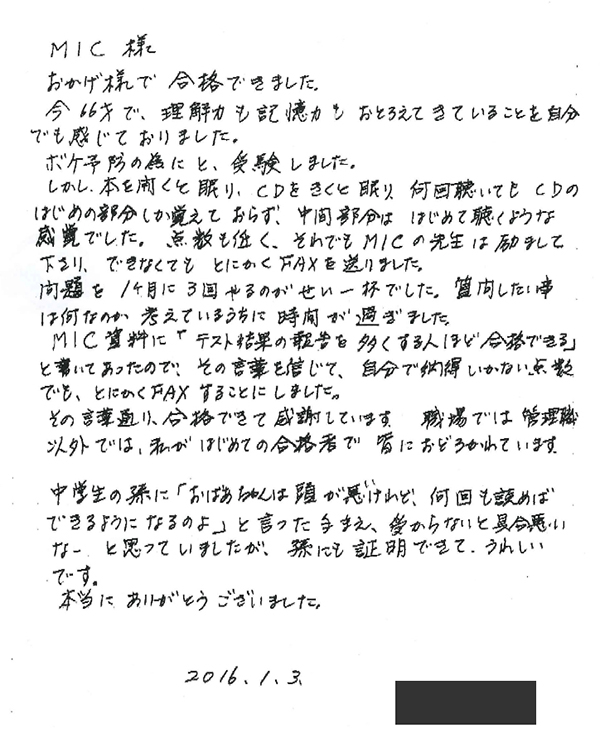 MIC 様
おかげ様で 合格できました。
今66才で、理解力も記憶力も おとろえてきていることを自分
でも感じておりました。
ボケ予防の為にと、受験しました。
しかし、本を開くと眠り、CDをきくと眠り、何回聴いても CDの
はじめの部分しか覚えて おらず、中間部分は はじめて聴くような
感覚でした。 点数も低く、それでもMICの先生は励まして
下さり、できなくても とにかくFAXを送りました。
問題を 1ケ月に 3回やるのがせい一杯でした。質問したい事
は何なのか 考えているうちに 時間が 過ぎました。
MIC資料に「テスト結果の報告を 多くする人ほど合格できる」
と書いてあったので、その言葉を信じて、自分で納得いかない点数
でも、とにかくFAXすることにしました。
その言葉通り、合格できて感謝しています 職場では管理職
以外では、私がはじめての合格者で 皆におどろかれています
中学生の孫に「おばあちゃんは 頭が悪けれど、何回も読めば
できるようになるのよ」と言った手まえ、受からないと具合悪い
なー と思っていましたが、孫にも証明できて、うれしい
です。
本当に ありがとうございました。
2016.1.3.